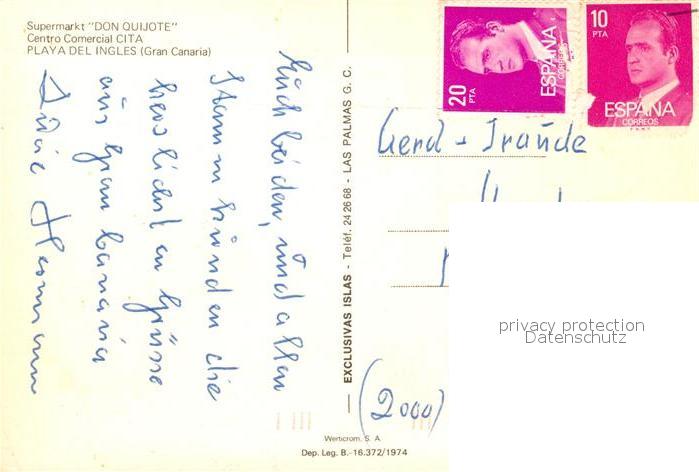 Supermarkt "DON QUIJOTE"
Centro Comercial CITA
PLAYA DEL INGLES (Gran Canaria)
Euch beiden, und allen
Stammkunden die
herzlichsten Grüsse
aus Gran Canaria
Hermann
EXCLUSIVAS ISLAS - Teléf. 24 26 68 - LAS PALMAS G. C.
20
PTA
ESPAÑA
CORREOS
10
PTA
ESPAÑA
CORREOS
F.N.M.T.
Gerd - Traude
privacy protection
Datenschutz
(2000)
Werticrom, S. A.
Dep. Leg. B.-16.372/1974